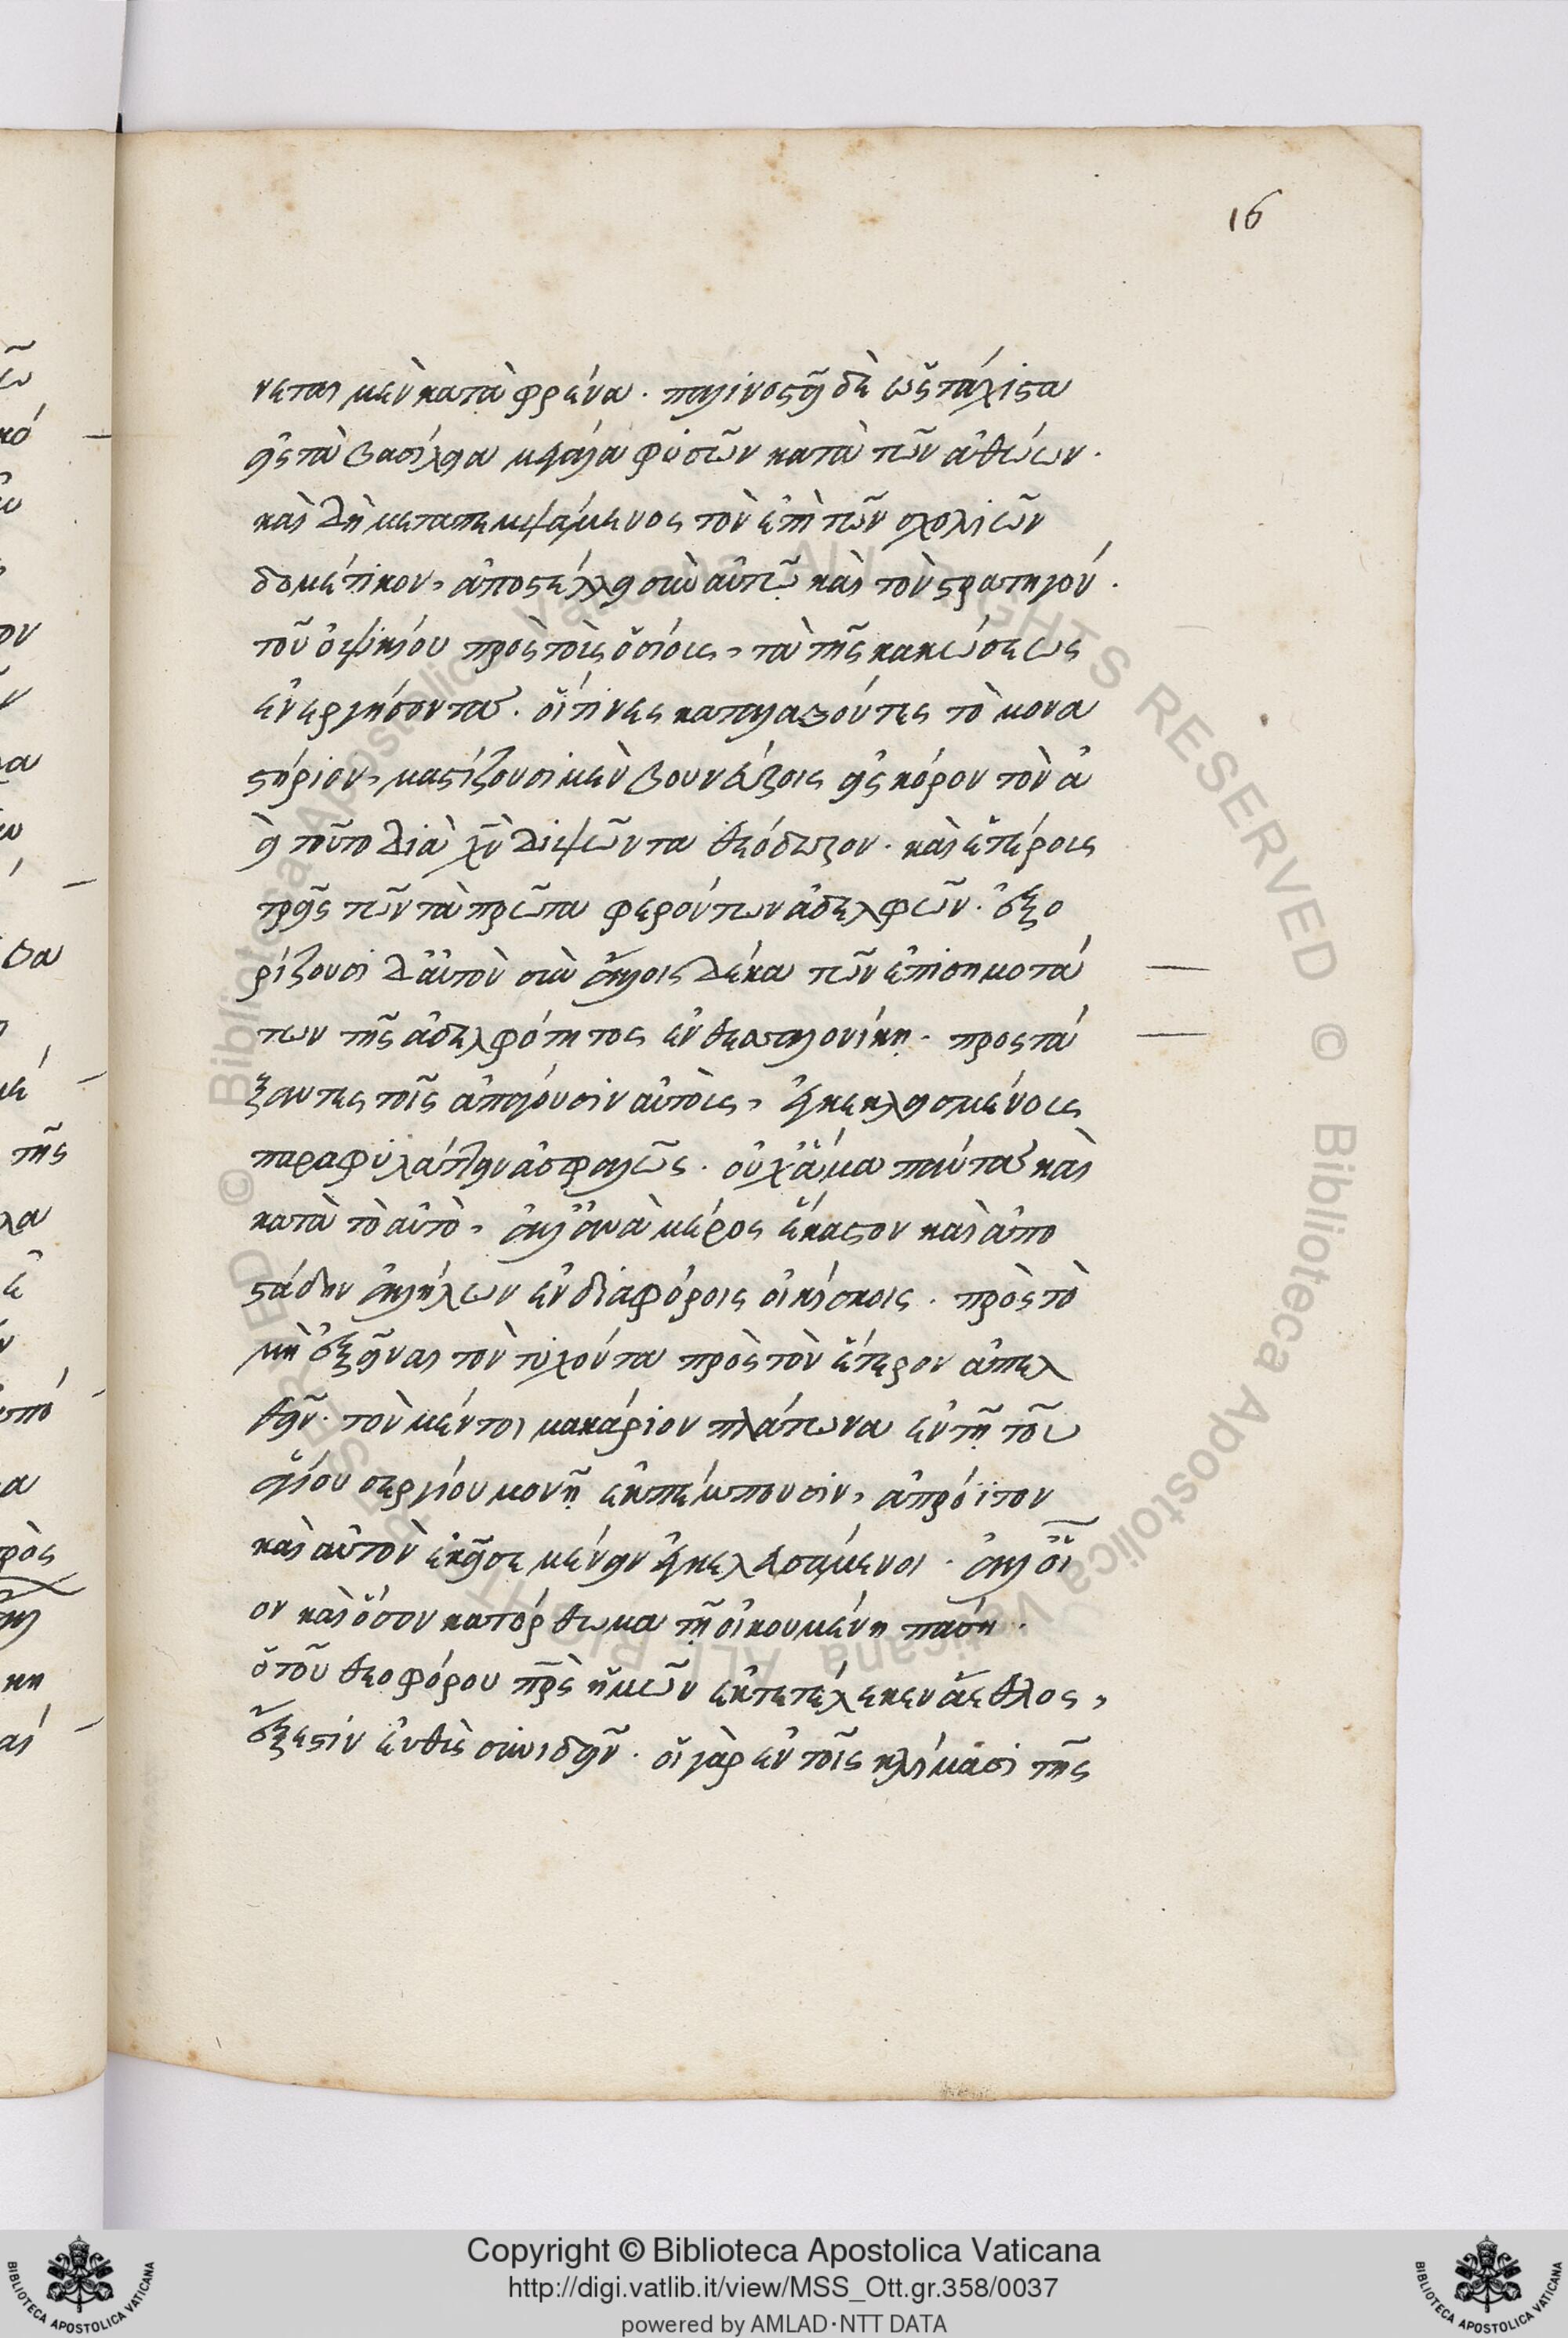 16
νεται μὲν κατὰ φρένα. παλινοστεῖ δὲ ὡς τάχιστα
εἰς τὰ βασίλεια μεγάλα φυσῶν κατὰ τῶν ἀθώων.
καὶ δὴ μεταπεμψάμενος τὸν ἐπὶ τῶν σχολιῶν
δομέτικον, ἀποστέλλει σὺν αὐτῷ καὶ τὸν στρατηγόν.
τοῦ ὀψικίου πρὸς τοῖς ὁσίοις, τὰ τῆς κακώσεως
ἐνεργήσοντα. οἵτινες καταλαβόντες τὸ μονα
στήριον, μαστίζουσι μὲν βουνεύροις εἰς κόρον τὸν ἀ
εὶ τοῦτο διὰ χν διψῶντα θεόδωρον. καὶ ἑτέροις
τρεῖς τῶν τὰ πρῶτα φερόντων ἀδελφῶν. ἐξο
ρίζουσι δ' αὐτὸν σὺν ἄλλοις δέκα τῶν ἐπισημοτά
των τῆς ἀδελφότητος ἐν θεσσαλονίκῃ. προστά
ξαντες τοῖς ἀπάγουσιν αὐτοῖς, ἐγκεκλεισμένοις
παραφυλάττειν ἀσφαλῶς. οὐχ ἅμα πάντα καὶ
κατὰ τὸ αὐτὸ, ἀλλ' ἀνὰ μέρος ἕκαστον καὶ ἀπο
στάδην ἀλλήλων ἐν διαφόροις οἰκίσκοις. πρὸς τὸ
μὴ ἐξεῖναι τὸν τυχόντα πρὸς τὸν ἕτερον ἀπελ
θεῖν. τὸν μέντοι μακάριον πλάτωνα ἐν τῇ τοῦ
ἁγίου σεργίου μονῇ ἐκπέμπουσιν, ἀπρόϊτον
καὶ αὐτὸν ἐκεῖσε μένειν ἐγκελευσάμενοι. ἀλλ' οἷ
ον καὶ ὅσον κατόρθωμα τῇ οἰκουμένῃ πάσῃ.
ὁ τοῦ θεοφόρου πρς ἡμῶν ἐκτετέλεκεν ἄεθλος,
ἔξεστιν εὐθὺς συνιδεῖν. οἱ γὰρ ἐν τοῖς κλίμασι τῆς
Copyright © Biblioteca Apostolica Vaticana
http://digi.vatlib.it/view/MSS_Ott.gr.358/0037
powered by AMLAD·NTT DATA